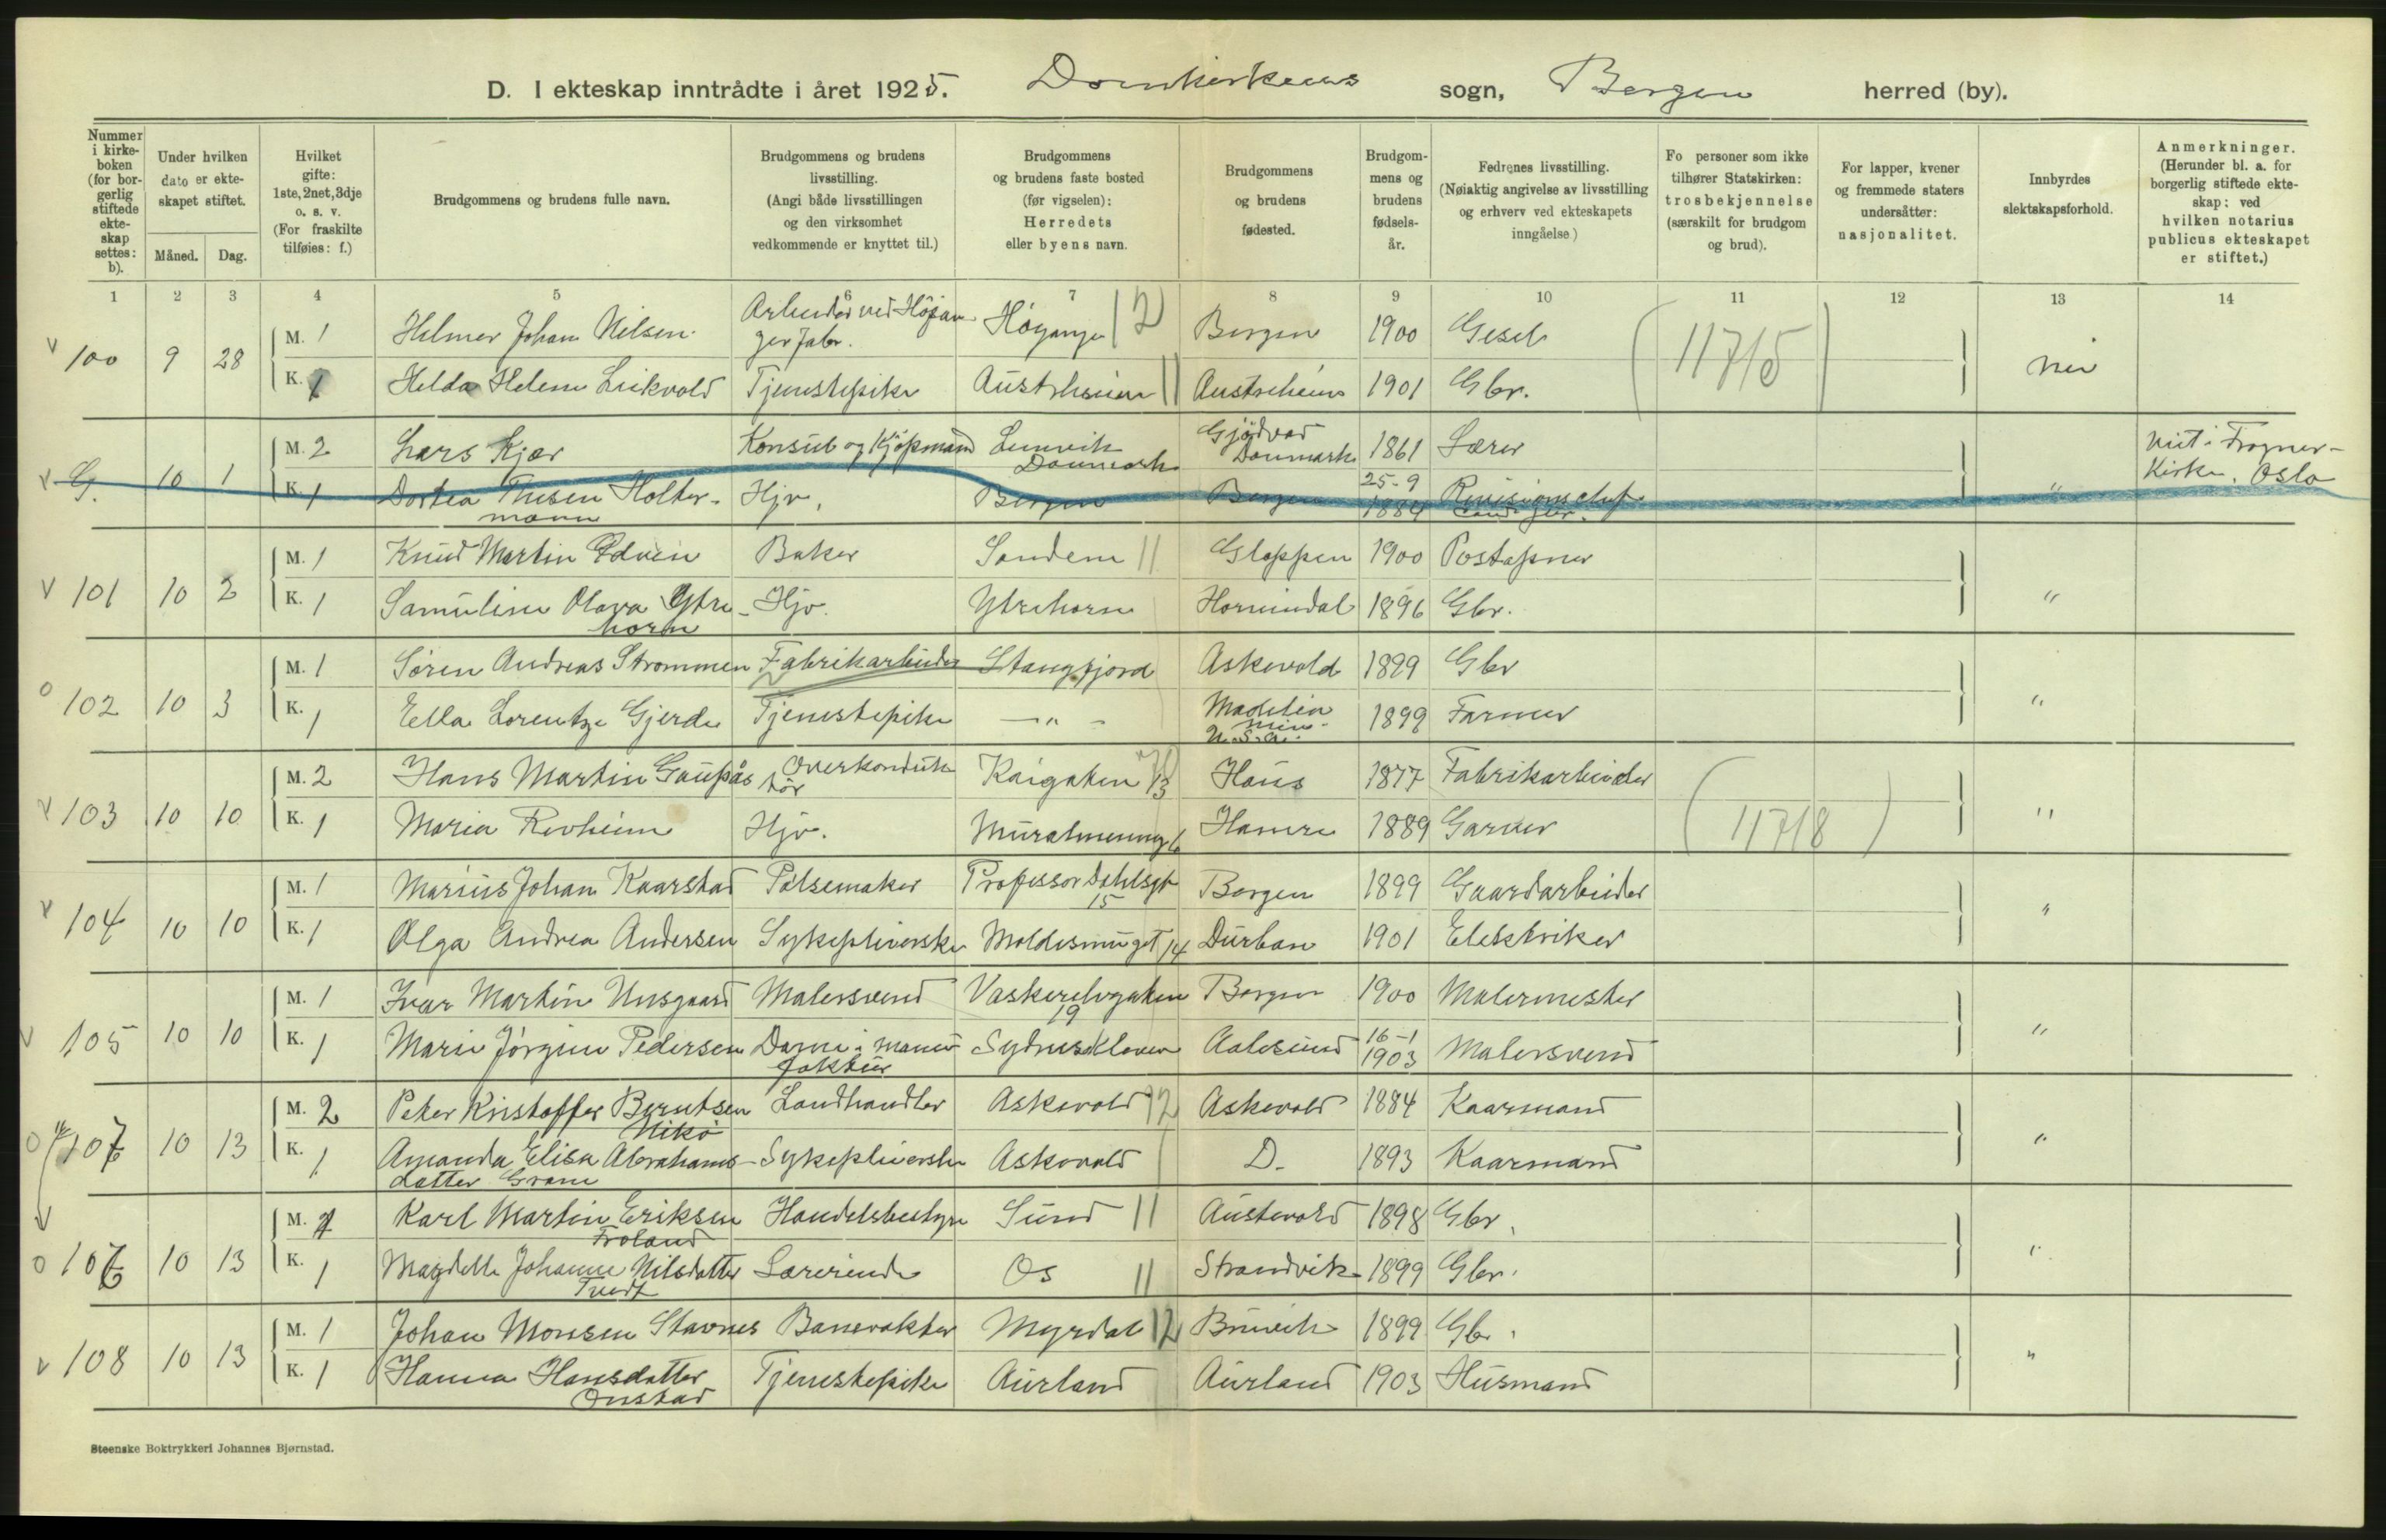 D. I ekteskap inntrådte i året 1925. Domkirkens sogn, Bergen herred (by).
Nummer i kirke-boken (for bor-gerlig stiftede ekte-skap settes: b).
Under hvilken dato er ekte-skapet stiftet.
Måned. Dag.
Hvilket gifte: 1ste, 2net, 3dje o. s. v. (For fraskilte tilføies: f.)
Brudgommens og brudens fulle navn.
Brudgommens og brudens livsstilling. (Angi både livsstillingen og den virksomhet vedkommende er knyttet til.)
Brudgommens og brudens faste bosted (før vigselen): Herredets eller byens navn.
Brudgommens og brudens fødested.
Brudgom-mens og brudens fødsels-år.
Fedrenes livsstilling. (Nøiaktig angivelse av livsstilling og erhverv ved ekteskapets inngåelse)
Fo personer som ikke tilhører Statskirken: trosbekjennelse (særskilt for brudgom og brud).
For lapper, kvener og fremmede staters undersåtter: nasjonalitet.
Innbyrdes slektskapsforhold.
Anmerkninger. (Herunder bl. a. for borgerlig stiftede ekte-skap: ved hvilken notarius publicus ekteskapet er stiftet.)
1 2 3 4 5 6 7 8 9 10 11 12 13 14
v 100 9 28 M. 1 Hilmer Johan Nilsen Arbeider ved Höjan-ger fabr. Höyanger 12 Bergen 1900 (11715) nei
K. 1 Helda Helene Leikvold Tjenestepike Austrheim 11 Austreheim 1901 Gbr.
v G. 10 1 M. 2 Lars Kjær Konsul og Kjöpmand Lemvik Danmark Danmark 1861 Lærer viet i Frogner-Kirke, Oslo
K. 1 Dortea Thesen Holter-mann Hjv. Bergen Bergen 25-9 1884 "
v 101 10 2 M. 1 Knud Martin Edvin Baker Sandene 11 Gloppen 1900 Postapner "
K. 1 Samuline Olava Ytre-horn Hjv. Ytrehorn Hornindal 1896 Gbr.
o 102 10 3 M. 1 Sören Andreas Strømmen Fabrikarbeider Stangfjord Askevold 1899 Gbr "
K. 1 Ella Lorentze Gjerde Tjenestepike - " - Madelia Min. U.S.A. 1899 Farmer
v 103 10 10 M. 2 Hans Martin Gaupås Overkonduk-tör Kaigaten 13 Haus 1877 Fabrikarbeider "
K. 1 Maria Revheim Hjv. Muralmenng 6 Hamre 1889 Garver (11718)
v 104 10 10 M. 1 Marius Johan Kaarstad Pölsemaker Professor Dahlsgt 15 Bergen 1899 Gaardarbeider "
K. 1 Olga Andrea Andersen Sykepleierske Moldesmuget 14 Durban 1901 Elektriker
v 105 10 10 M. 1 Ivar Martin Unsgaard Malersvend Vaskerelvgaten 19 Bergen 1900 Malermester "
K. 1 Marie Jörgine Pedersen Dame i manu-faktur Sydneskleven Aalesund 16-1 1903 Malersvend
o 107 10 13 M. 2 Peter Kristoffer Berntsen Nikö Landhandler Askevold 12 Askevold 1884 Kaarmand "
K. 1 Amanda Elisa Abrahams-datter Grane Sykepleierske Askevold D. 1893 Kaarmand
o 106 10 13 M. 1 Karl Martin Eriksen Froland Handelsbestyrer Sund 11 Austevold 1898 Gbr. "
K. 1 Magdelle Johanne Nilsdatter Tvedt Lærerinde Os 11 Strandvik 1899 Gbr.
v 108 10 13 M. 1 Johan Monsen Stavnes Banevokter Myrdal 12 Bruvik 1899 Gbr. "
K. 1 Hanna Hansdatter Onstad Tjenestepike Aurland Aurland 1903 Husmand
Steenske Boktrykkeri Johannes Bjørnstad.